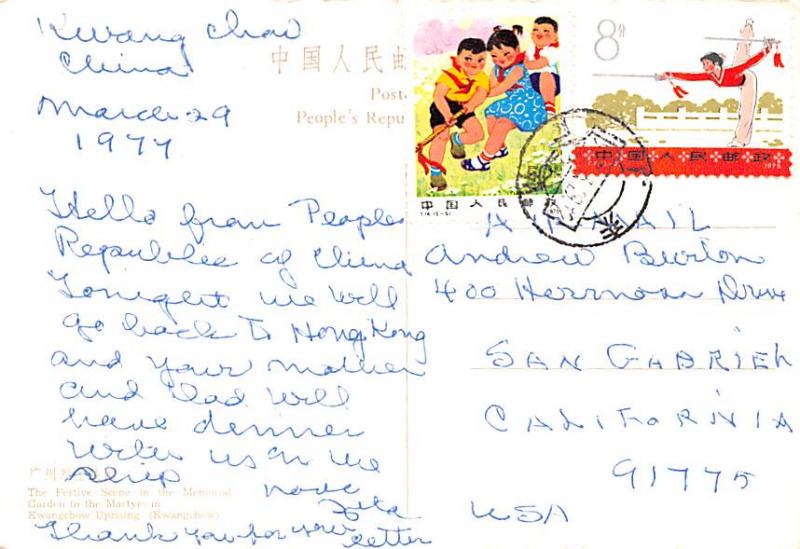 Kwang Chao
China
March 29
1977
中国人民邮
Post
People's Repu
Hello from Peoples
Republic of China
Tonight we will
go back to Hong Kong
and your mother
and Dad will
have dinner
write us on the
ship
Love
Thank you for your
letter
广州
The Festive Scene in the Memorial
Garden to the Martyrs in
Kwangchow Uprising (Kwangchow)
中国人民邮政
T.14.(5-5)
8分
中国人民邮政
1975
AIRMAIL
Andrew Burton
400 Hermosa Drive
SAN GABRIEL
CALIFORNIA
91775
USA